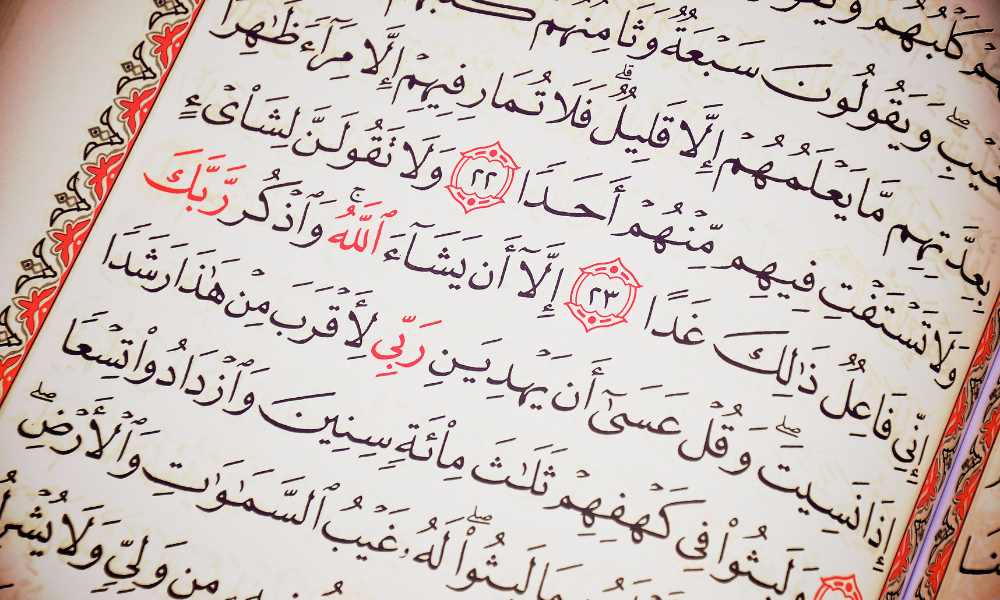 كَلْبُهُمْ
وَيَقُولُونَ سَبْعَةٌ وَثَامِنُهُمْ كَلْبُهُمْ
بِعِدَّتِهِم مَّا يَعْلَمُهُمْ إِلَّا قَلِيلٌ ۗ فَلَا تُمَارِ فِيهِمْ إِلَّا مِرَآءً ظَٰهِرًا
وَلَا تَسْتَفْتِ فِيهِم مِّنْهُمْ أَحَدًا ٢٢ وَلَا تَقُولَنَّ لِشَا۟ىْءٍ
إِنِّى فَاعِلٌ ذَٰلِكَ غَدًا ٢٣ إِلَّآ أَن يَشَآءَ ٱللَّهُ ۚ وَٱذْكُر رَّبَّكَ
إِذَا نَسِيتَ ۖ وَقُلْ عَسَىٰٓ أَن يَهْدِيَنِ رَبِّى لِأَقْرَبَ مِنْ هَٰذَا رَشَدًا
وَلَبِثُوا۟ فِى كَهْفِهِمْ ثَلَٰثَ مِا۟ئَةٍ سِنِينَ وَٱزْدَادُوا۟ تِسْعًا
لَبِثُوا۟ ۖ لَهُۥ غَيْبُ ٱلسَّمَٰوَٰتِ وَٱلْأَرْضِ ۖ
مِن وَلِىٍّ وَلَا